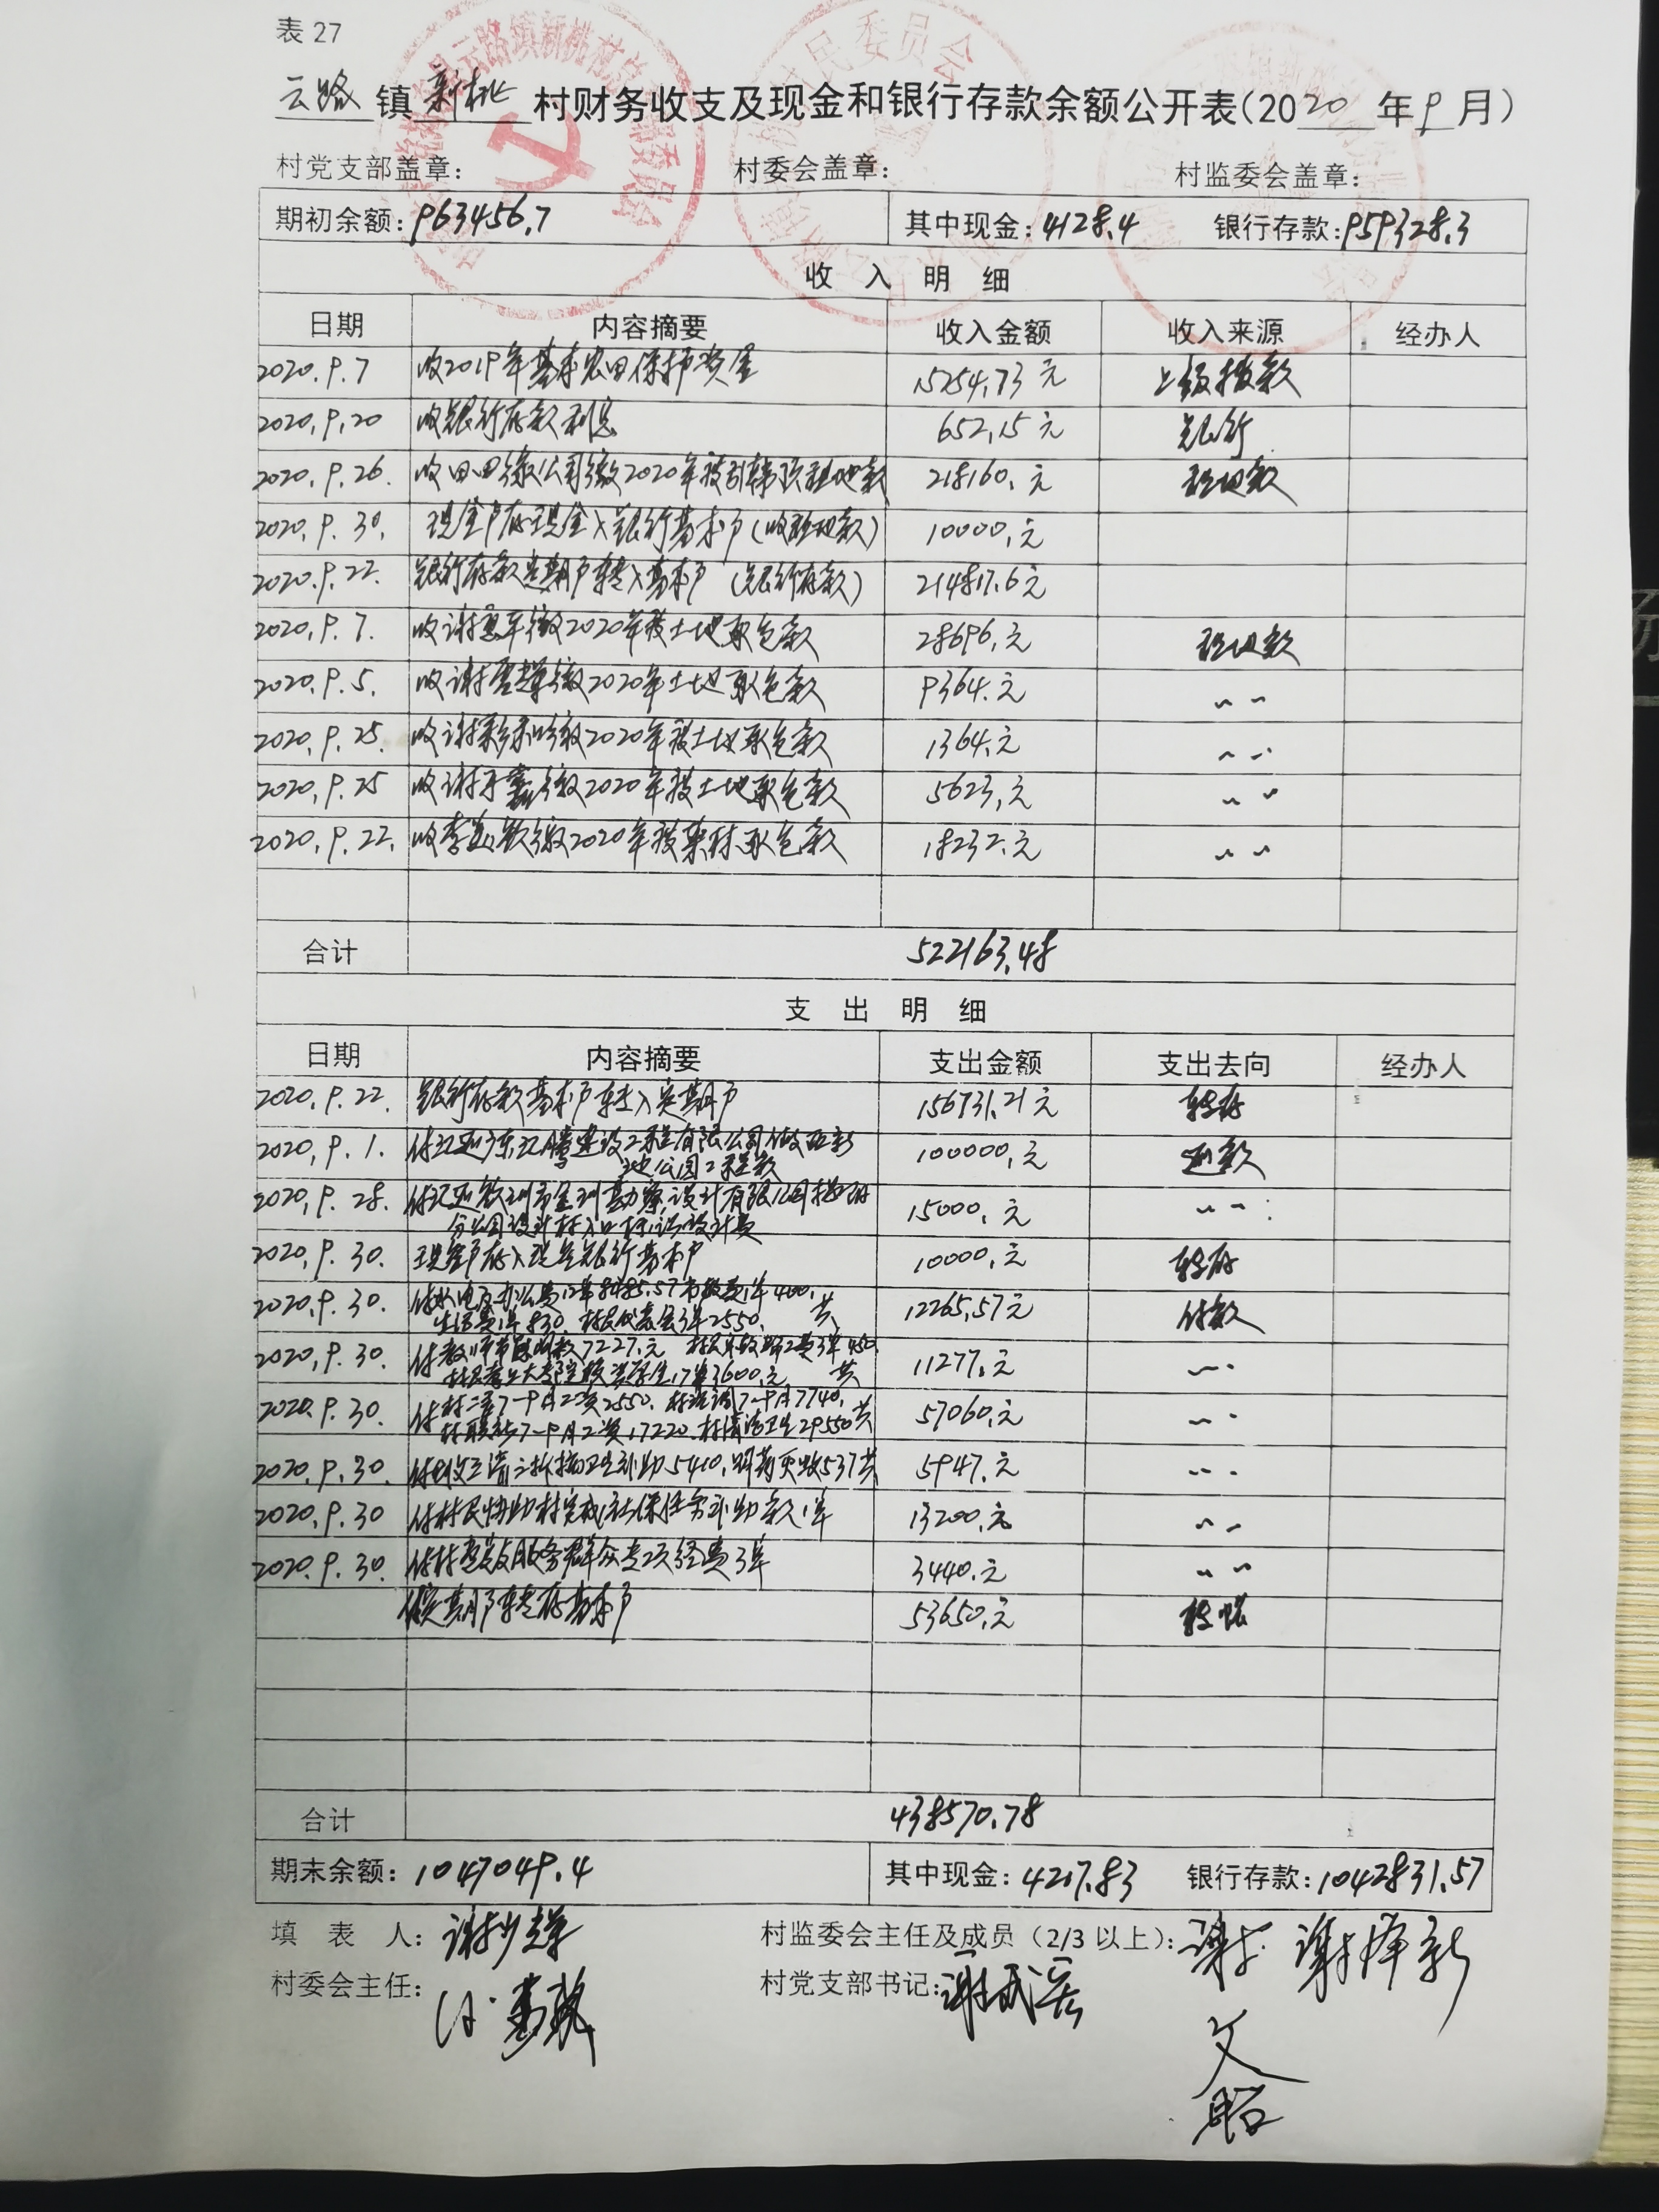 表 27
云路 镇 新桃 村财务收支及现金和银行存款余额公开表(2020 年 9 月)
村党支部盖章: 村委会盖章: 村监委会盖章:
期初余额: 963456.7 其中现金: 4128.4 银行存款: 959328.3
收 入 明 细
日期 内容摘要 收入金额 收入来源 经办人
2020.9.7 收2019年基本农田保护资金 15254.73元 上级拨款
2020.9.20 收银行存款利息 652.15元 银行
2020.9.26. 收田田缴公司缴2020年 租地款 218160.元 租地款
2020.9.30. 现金户存现金入银行基本户(收租地款) 10000.元
2020.9.22. 银行存款定期户转入基本户(银行存款) 214817.6元
2020.9.7. 收谢 缴2020年度土地承包款 28696.元 租地款
2020.9.5. 收谢 缴2020年土地承包款 9364.元 〃
2020.9.25. 收谢 缴2020年度土地承包款 1364.元 〃
2020.9.25 收谢 缴2020年度土地承包款 5623.元 〃
2020.9.22. 收李 缴2020年度 承包款 18232.元 〃
合计 522163.48
支 出 明 细
日期 内容摘要 支出金额 支出去向 经办人
2020.9.22. 银行存款基本户转入定期户 156731.21元 转存
2020.9.1. 建设工程有限公司
公园工程款 100000.元 还款
2020.9.28. 勘察设计有限公司
分公司设计村入口标识设计费 15000.元 〃
2020.9.30. 现金户存入现金银行基本户 10000.元 转存
2020.9.30. 付水电及办公费12单8485.57 1单400.
生活费1单830. 村民代表会3单2550. 共 12265.57元 付款
2020.9.30. 付教师节 款7227.元 3单450
奖学金17单3600.元 共 11277.元 〃
2020.9.30. 付村 7-9月工资2550. 7-9月7740.
7-9月工资17220. 村清洁卫生29550共 57060.元 〃
2020.9.30. 三清三拆 卫生补助5410. 537共 5947.元 〃
2020.9.30 付村民协助村完成社保任务补助款1单 13200.元 〃
2020.9.30 付村党支服务群众专项经费3单 3440.元 〃
定期户转存基本户 53650.元 转账
合计 438570.78
期末余额: 1047049.4 其中现金: 4217.83 银行存款: 1042831.57
填 表 人: 谢 村监委会主任及成员(2/3 以上): 谢 谢泽新
村委会主任: 村党支部书记: 谢
文